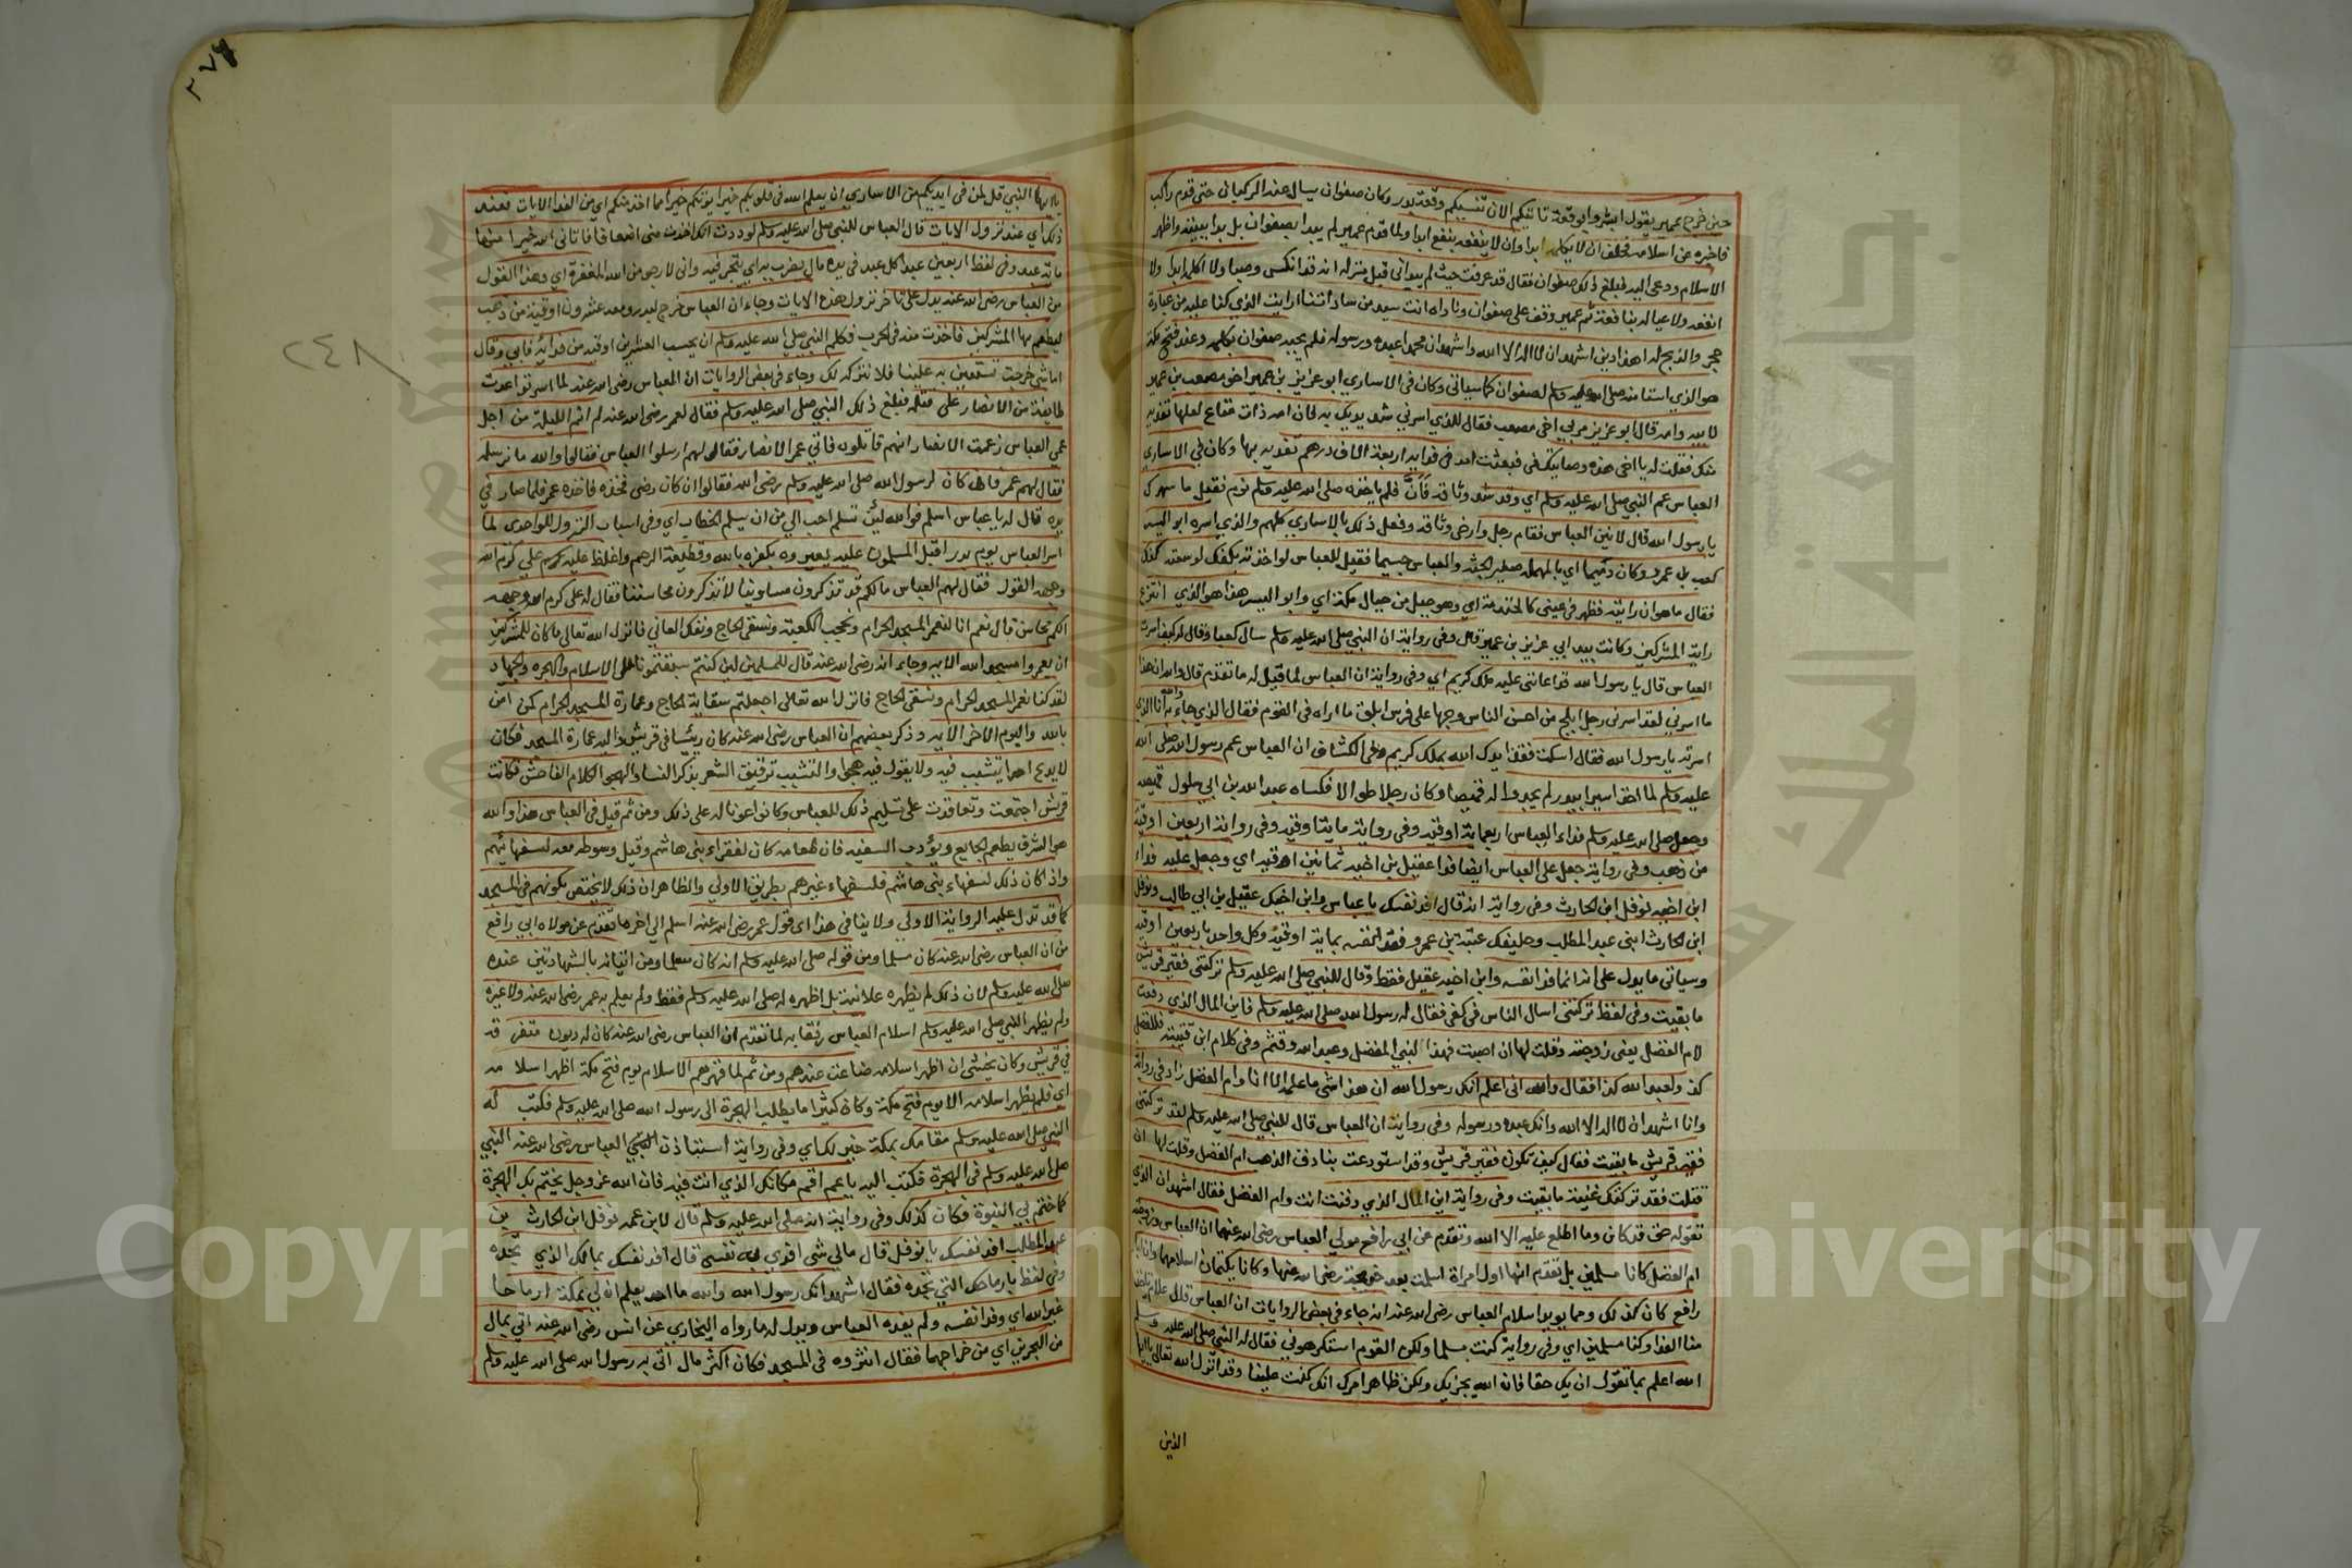 حين خرج عمير يقول ابشروا بوقعة تاتيكم الان تنسيكم وقعة بدر وكان صفوان يسال عنه الركبان حتى قدم راكب
فاخبره عن اسلامه فحلف ان لا يكلمه ابدا وان لا ينفعه بنفع ابدا ولما قدم عمير لم يبدا بصفوان بل بدا ببيته واظهر
الاسلام ودعى اليه فبلغ ذلك صفوان فقال قد عرفت حيث لم يبداني قبل منزله انه قد انكس وصبا ولا اكلمه ابدا ولا
انفعه ولا عياله بنافعة ثم عمير وقف على صفوان وناداه انت سيد من ساداتنا ارايت الذي كنا عليه من عبادة
حجر والذبح له اهذا دين اشهد ان لا اله الا الله واشهد ان محمدا عبده ورسوله فلم يجبه صفوان بكلمه وعند فتح مكة
هو الذي استامنه صلى الله عليه وسلم لصفوان كما سياتي وكان في الاسارى ابو عزيز بن عمير اخو مصعب بن عمير
لابيه وامه قال ابو عزيز مر بي اخي مصعب فقال للذي اسرني شد يديك به فان امه ذات متاع لعلها تفديه
منك فقلت له يا اخي هذه وصايتك في فبعثت امه في فدايه اربعة الاف درهم تفديه بها وكان في الاساري
العباس عم النبي صلى الله عليه وسلم اي وقد شد وثاقه فانّ فلم ياخذه صلى الله عليه وسلم نوم فقيل ما سهرك
يا رسول الله قال لانين العباس فقام رجل وارخى وثاقه وفعل ذلك بالاساري كلهم والذي اسره ابو اليسر
كعب بن عمرو وكان دميما اي بالمهملة صغير الجثة والعباس جسيما فقيل للعباس لو اخذته بكفك لوسعته كفك
فقال ما هو ان رايته فظهر في عيني كالخندمة اي وهو جبل من جبال مكة اي وابو اليسر هذا هو الذي انتزع
راية المشركين وكانت بيد ابي عزيز بن عمير وفي رواية ان النبي صلى الله عليه وسلم سال كعبا وقال له كيف اسرت
العباس قال يا رسول الله قد اعانني عليه ملك كريم اي وفي رواية ان العباس لما قيل له ما تقدم قال والله ان هذا
ما اسرني لقد اسرني رجل ابلج من احسن الناس وجها على فرس ابلق ما اراه في القوم فقال الذي جاء به والله انا الذي
اسرته يا رسول الله فقال اسكت فقد ايدك الله بملك كريم وفي الكشاف ان العباس عم رسول الله صلى الله
عليه وسلم لما اخذ اسيرا ببدر لم يجدوا له قميصا وكان رجلا طوالا فكساه عبد الله بن ابي سلول قميصه
وجعل صلى الله عليه وسلم فداء العباس اربعماية اوقية وفي رواية ماية اوقية وفي رواية اربعين اوقية
من ذهب وفي رواية جعل على العباس ايضا فدا عقيل بن اخيه ثمانين اوقية اي وجعل عليه فداء
ابن اخيه نوفل ابن الحارث وفي رواية انه قال افد نفسك يا عباس وابن اخيك عقيل بن ابي طالب ونوفل
ابن الحارث ابني عبد المطلب وحليفك عتبة بن عمرو ففدا نفسه بماية اوقية وكل واحد باربعين اوقية
وسياتي ما يدل على انه انما فدا نفسه وابن اخيه عقيل فقط وقال للنبي صلى الله عليه وسلم تركتني فقير قريش
ما بقيت وفي لفظ تركتني اسال الناس في كفي فقال له رسول الله صلى الله عليه وسلم فاين المال الذي دفعت
لام الفضل يعني زوجته وقلت لها ان اصبت فهذا لبني الفضل وعبد الله وقثم وفي كلام ابن قتيبة فللفضل
كذا ولعبد الله كذا فقال والله اني اعلم انك رسول الله ان هذا شي ما علمه الا انا وام الفضل زاد في رواية
وانا اشهد ان لا اله الا الله وانك عبده ورسوله وفي رواية ان العباس قال للنبي صلى الله عليه وسلم لقد تركتني
فقير قريش ما بقيت فقال كيف تكون فقير قريش وقد استودعت بنادق الذهب ام الفضل وقلت لها ان
قتلت فقد تركتك غنية ما بقيت وفي رواية اين المال الذي دفنت انت وام الفضل فقال اشهد ان الذي
تقوله حق قد كان وما اطلع عليه الا الله وتقدم عن ابي رافع مولي العباس رضي الله عنهما ان العباس وزوجته
ام الفضل كانا مسلمين بل تقدم انها اول امراة اسلمت بعد خديجة رضي الله عنها وكانا يكتمان اسلامهما وان ابا
رافع كان كذلك ومما يويد اسلام العباس رضي الله عنه انه جاء في بعض الروايات ان العباس قال علام ياخذ
منا الفدا وكنا مسلمين اي وفي رواية كنت مسلما ولكن القوم استكرهوني فقال له النبي صلى الله عليه وسلم
الله اعلم بما تقول ان يك حقا فان الله يجزيك ولكن ظاهر امرك انك كنت علينا وقد انزل الله تعالى يا ايها
الذين
٢٧٤
٢٤٨
يا ايها النبي قل لمن في ايديكم من الاساري ان يعلم الله في قلوبكم خيرا يوتكم خيرا مما اخذ منكم اي من الفدا الايات فعند
ذلك اي عند نزول الايات قال العباس للنبي صلى الله عليه وسلم لوددت انك اخذت مني اضعافا فاتاني الله خيرا منها
ماية عبد وفي لفظ اربعين عبدا كل عبد في يده مال يضرب به اي يتجر فيه واني لارجو من الله المغفرة اي وهذا القول
من العباس رضي الله عنه يدل على تاخر نزول هذه الايات وجاء ان العباس خرج لبدر ومعه عشرون اوقية من ذهب
ليطعم بها المشركين فاخذت منه في الحرب فكلم النبي صلى الله عليه وسلم ان يحسب العشرين اوقية من فدائه فابي وقال
اما شي خرجت تستعين به علينا فلا نتركه لك وجاء في بعض الروايات ان العباس رضي الله عنه لما اسر تواعدت
طايفة من الانصار على قتله فبلغ ذلك النبي صلى الله عليه وسلم فقال لعمر رضي الله عنه لم انم الليلة من اجل
عمي العباس زعمت الانصار انهم قاتلوه فاتي عمر الانصار فقال لهم ارسلوا العباس فقالوا والله ما نرسله
فقال لهم عمر فان كان لرسول الله صلى الله عليه وسلم رضي الله فقالوا ان كان رضي فخذه فاخذه عمر فلما صار في
يده قال له يا عباس اسلم فوالله لين تسلم احب الي من ان يسلم الخطاب اي وفي اسباب النزول للواحدي لما
اسر العباس يوم بدر اقبل المسلمون عليه يعيروه بكفره بالله وقطيعة الرحم واغلظ عليه علي كرم الله
وجهه القول فقال لهم العباس ما لكم قد تذكرون مساوينا لا تذكرون محاسننا فقال له على كرم الله وجهه
الكم محاسن قال نعم انا لنعمر المسجد الحرام ونحجب الكعبة ونسقي الحاج ونفك العاني فانزل الله تعالى ما كان للمشركين
ان يعمروا مسجد الله الاية وجاء انه رضي الله عنه قال للمسلمين لين كنتم سبقتمونا بالاسلام والهجره والجهاد
لقد كنا نعمر المسجد الحرام ونسقي الحاج فانزل الله تعالى اجعلتم سقاية الحاج وعمارة المسجد الحرام كمن امن
بالله واليوم الاخر الاية وذكر بعضهم ان العباس رضي الله عنه كان رئيسا في قريش واليه عمارة المسجد فكان
لا يدع احدا يتشبب فيه ولا يقول فيه هجرا والتشبيب ترقيق الشعر بذكر النساء والهجر الكلام الفاحش فكانت
قريش اجتمعت وتعاقدت على تسليم ذلك للعباس وكانوا عونا له على ذلك ومن ثم قيل في العباس هذا والله
هو الشرف يطعم الجايع ويؤدب السفيه فان طعامه كان لفقراء بني هاشم وقيل وسوطه معد لسفهائهم
واذا كان ذلك لسفهاء بني هاشم فلسفهاء غيرهم بطريق الاولي والظاهر ان ذلك لا يختص بكونهم في المسجد
كما قد تدل عليه الرواية الاولي ولا ينافي هذا اي قول عمر رضي الله عنه اسلم الي اخره ما تقدم عن مولاه ابي رافع
من ان العباس رضي الله عنه كان مسلما ومن قوله صلى الله عليه وسلم انه كان مسلما ومن اتيانه بالشهادتين عنده
صلى الله عليه وسلم لان ذلك لم يظهره علانية بل اظهره له صلى الله عليه وسلم فقط ولم يعلم به عمر رضي الله عنه ولا غيره
ولم يظهر النبي صلى الله عليه وسلم اسلام العباس رفقا به لما تقدم ان العباس رضي الله عنه كان له ديون متفرقة
في قريش وكان يخشي ان اظهر اسلامه ضاعت عندهم ومن ثم لما قهرهم الاسلام يوم فتح مكة اظهر اسلامه
اي فلم يظهر اسلامه الا يوم فتح مكة وكان كثيرا ما يطلب الهجرة الى رسول الله صلى الله عليه وسلم فكتب له
النبي صلى الله عليه وسلم مقامك بمكة خير لك اي وفي رواية استاذن العباس رضي الله عنه النبي
صلى الله عليه وسلم في الهجرة فكتب اليه يا عم اقم مكانك الذي انت فيه فان الله عز وجل يختم بك الهجرة
كما ختم بي النبوة فكان كذلك وفي رواية انه صلى الله عليه وسلم قال لابن عمه نوفل ابن الحارث بن
عبد المطلب افد نفسك يا نوفل قال مالي شي افدي به نفسي قال افد نفسك بمالك الذي بجده
وفي لفظ بارماحك التي بجده فقال اشهد انك رسول الله والله ما احد يعلم ان لي بجدة ارماحا
غير الله اي وفدا نفسه ولم يفده العباس ويدل له ما رواه البخاري عن انس رضي الله عنه اتي بمال
من البحرين اي من خراجها فقال انثروه في المسجد فكان اكثر مال اتي به رسول الله صلى الله عليه وسلم
Copyright © King Saud University